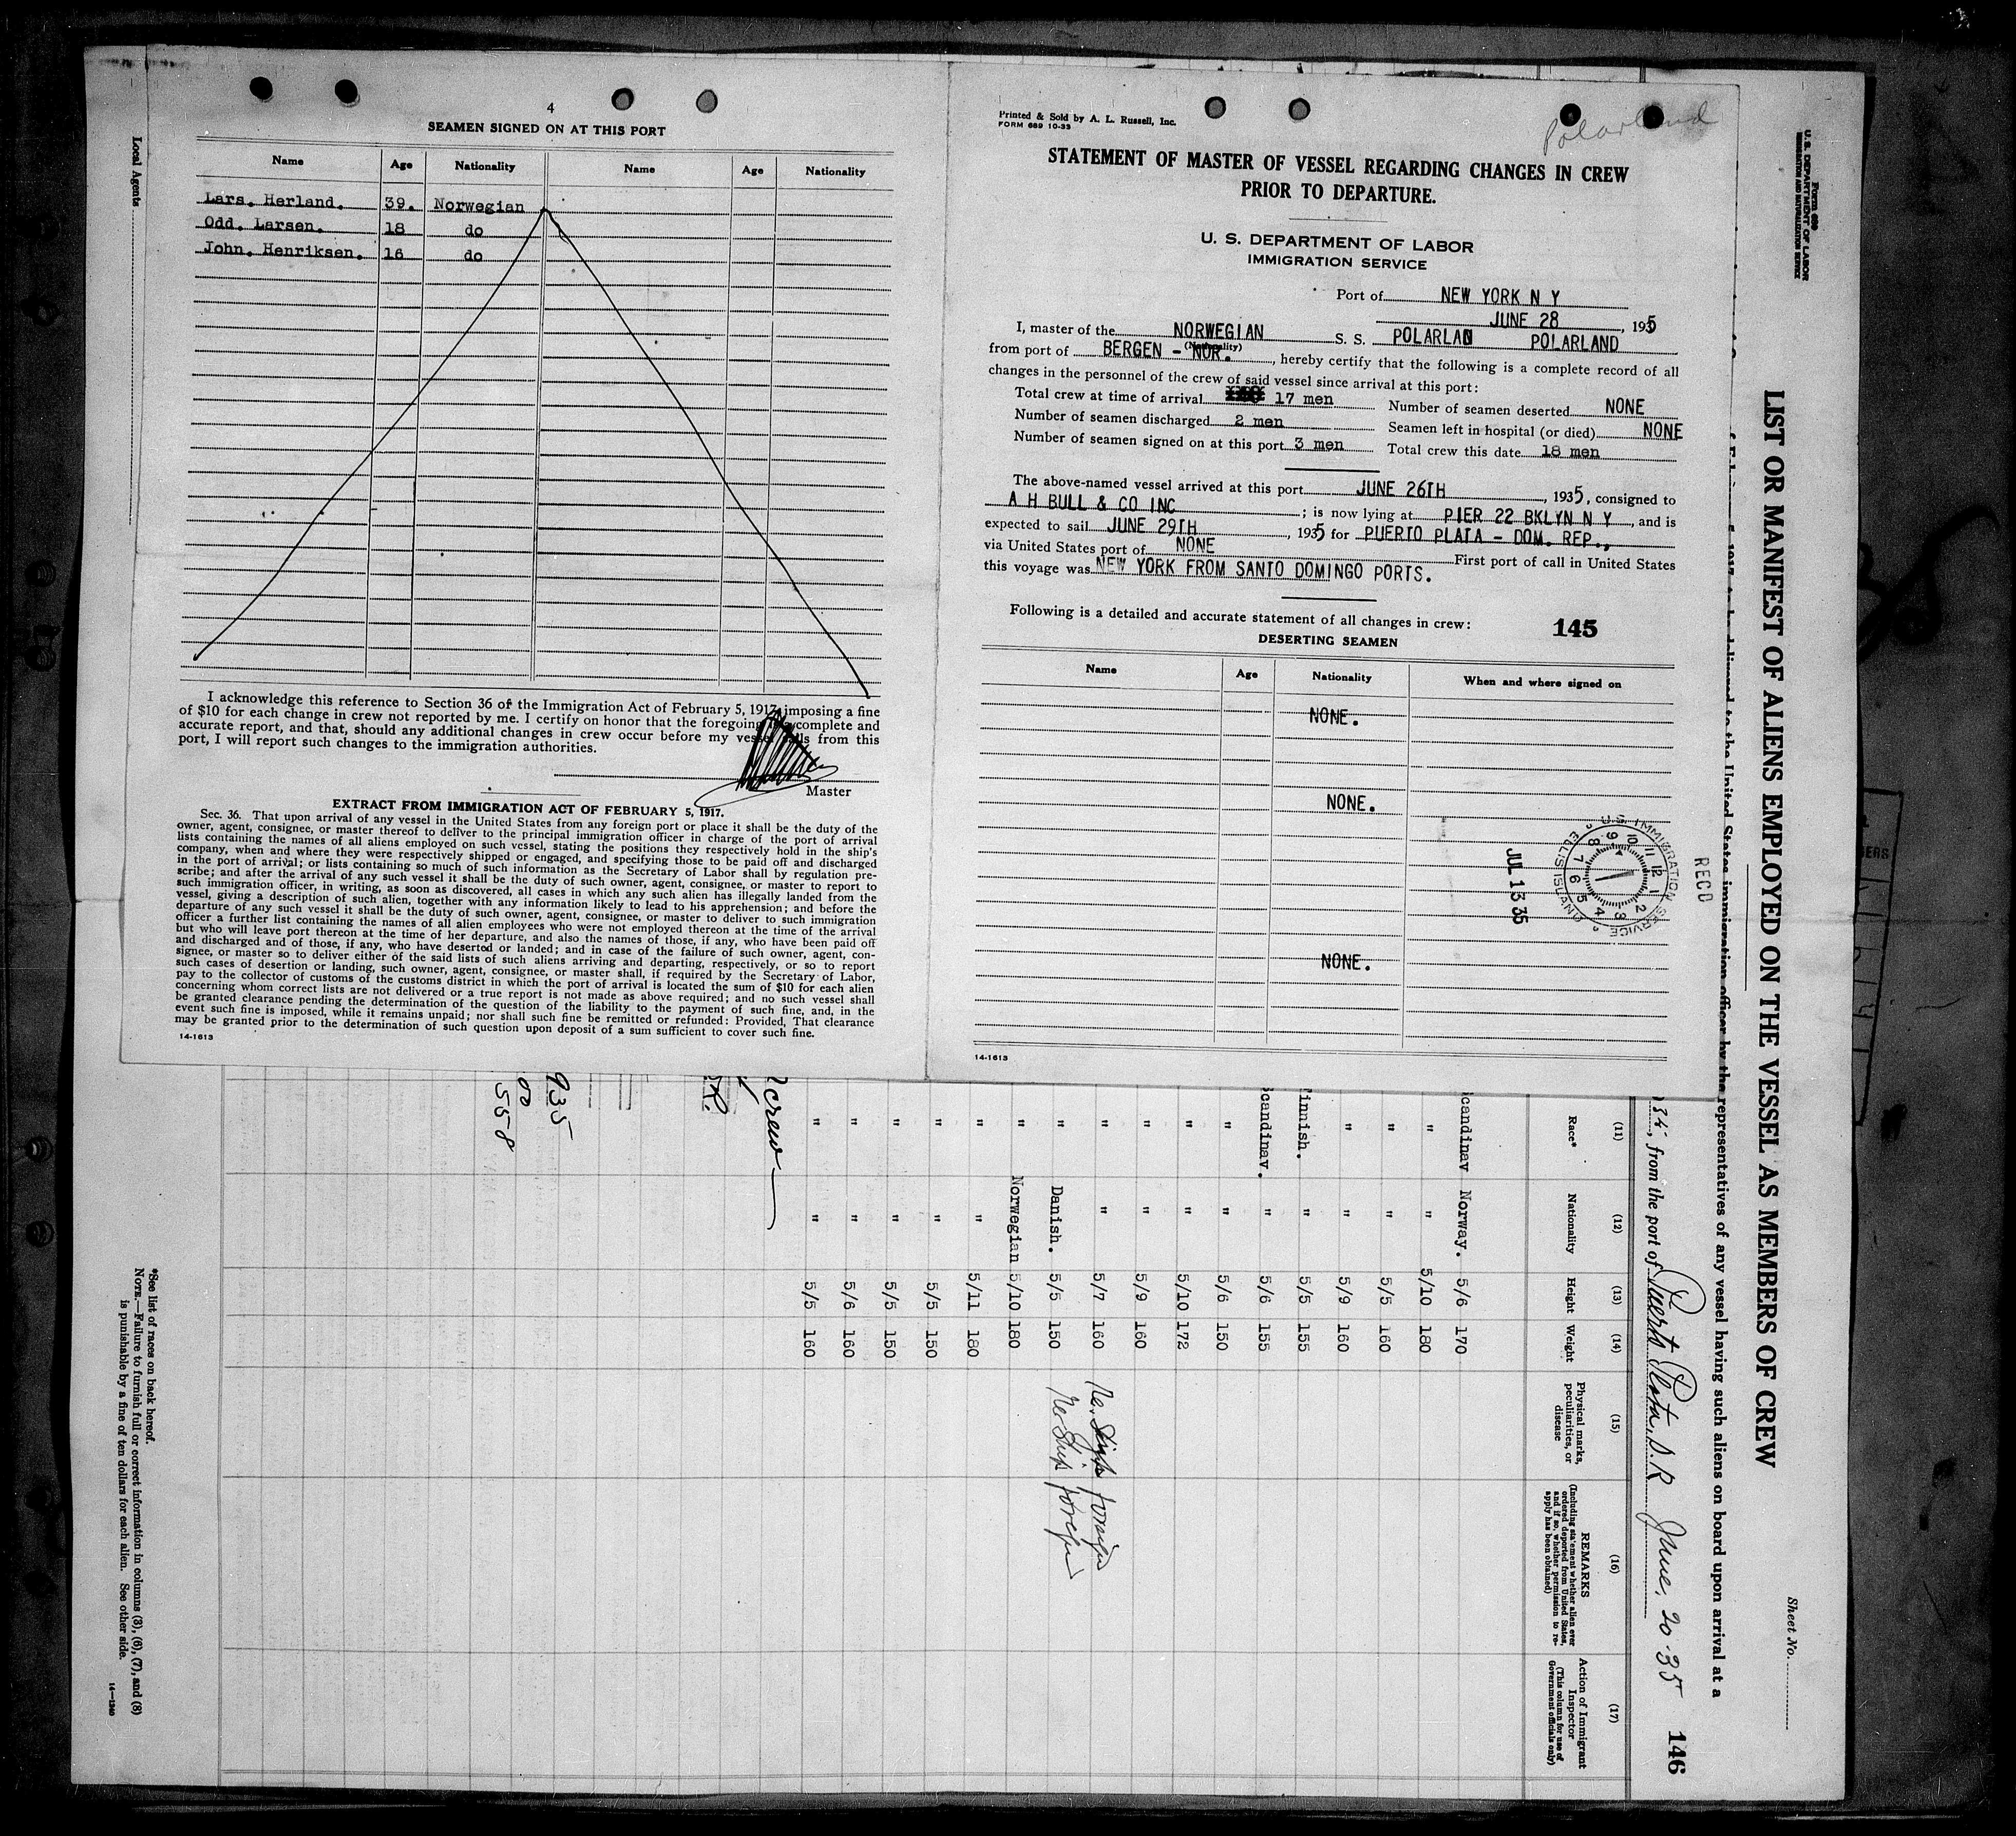 4
SEAMEN SIGNED ON AT THIS PORT
Name Age Nationality Name Age Nationality
Lars. Herland. 39. Norwegian
Odd. Larsen. 18 do
John. Henriksen. 16 do
I acknowledge this reference to Section 36 of the Immigration Act of February 5, 1917, imposing a fine
of $10 for each change in crew not reported by me. I certify on honor that the foregoing is a complete and
accurate report, and that, should any additional changes in crew occur before my vessel sails from this
port, I will report such changes to the immigration authorities.
Master
EXTRACT FROM IMMIGRATION ACT OF FEBRUARY 5, 1917.
Sec. 36. That upon arrival of any vessel in the United States from any foreign port or place it shall be the duty of the
owner, agent, consignee, or master thereof to deliver to the principal immigration officer in charge of the port of arrival
lists containing the names of all aliens employed on such vessel, stating the positions they respectively hold in the ship's
company, when and where they were respectively shipped or engaged, and specifying those to be paid off and discharged
in the port of arrival; or lists containing so much of such information as the Secretary of Labor shall by regulation pre-
scribe; and after the arrival of any such vessel it shall be the duty of such owner, agent, consignee, or master to report to
such immigration officer, in writing, as soon as discovered, all cases in which any such alien has illegally landed from the
vessel, giving a description of such alien, together with any information likely to lead to his apprehension; and before the
departure of any such vessel it shall be the duty of such owner, agent, consignee, or master to deliver to such immigration
officer a further list containing the names of all alien employees who were not employed thereon at the time of the arrival
but who will leave port thereon at the time of her departure, and also the names of those, if any, who have been paid off
and discharged and of those, if any, who have deserted or landed; and in case of the failure of such owner, agent, con-
signee, or master so to deliver either of the said lists of such aliens arriving and departing, respectively, or so to report
such cases of desertion or landing, such owner, agent, consignee, or master shall, if required by the Secretary of Labor,
pay to the collector of customs of the customs district in which the port of arrival is located the sum of $10 for each alien
concerning whom correct lists are not delivered or a true report is not made as above required; and no such vessel shall
be granted clearance pending the determination of the question of the liability to the payment of such fine, and, in the
event such fine is imposed, while it remains unpaid; nor shall such fine be remitted or refunded: Provided, That clearance
may be granted prior to the determination of such question upon deposit of a sum sufficient to cover such fine.
14-1613
Local Agents
Printed & Sold by A. L. Russell, Inc.
FORM 689 10-33
Polarland
STATEMENT OF MASTER OF VESSEL REGARDING CHANGES IN CREW
PRIOR TO DEPARTURE.
U. S. DEPARTMENT OF LABOR
IMMIGRATION SERVICE
Port of NEW YORK N Y
JUNE 28, 1935
I, master of the NORWEGIAN S. S. POLARLAD POLARLAND
(Nationality)
from port of BERGEN - NOR., hereby certify that the following is a complete record of all
changes in the personnel of the crew of said vessel since arrival at this port:
Total crew at time of arrival 17 men Number of seamen deserted NONE
Number of seamen discharged 2 men Seamen left in hospital (or died) NONE
Number of seamen signed on at this port 3 men Total crew this date 18 men
The above-named vessel arrived at this port JUNE 26TH, 1935, consigned to
A H BULL & CO INC; is now lying at PIER 22 BKLYN N Y, and is
expected to sail JUNE 29TH, 1935 for PUERTO PLATA - DOM. REP.,
via United States port of NONE First port of call in United States
this voyage was NEW YORK FROM SANTO DOMINGO PORTS.
Following is a detailed and accurate statement of all changes in crew:
145
DESERTING SEAMEN
Name Age Nationality When and where signed on
NONE.
NONE.
NONE.
14-1613
RECD
U.S. IMMIGRATION SERVICE
ELLIS ISLAND
12 1 2 3 4 5 6 7 8 9 10 11
JUL 1 5 35
Form 689
U. S. DEPARTMENT OF LABOR
IMMIGRATION AND NATURALIZATION SERVICE
Sheet No.
LIST OR MANIFEST OF ALIENS EMPLOYED ON THE VESSEL AS MEMBERS OF CREW
to the United States immigration officer by the representatives of any vessel having such aliens on board upon arrival at a
, from the port of Puerto Plata, D. R June, 20-35
146
(11) (12) (13) (14) (15) (16) (17)
Race* Nationality Height Weight Physical marks, peculiarities, or disease
REMARKS (Including statement whether alien ever ordered deported from United States, and if so, whether permission to re-apply has been obtained)
Action of Immigrant Inspector (This column for use of Government officials only)
candinav Norway. 5/6 170
" " 5/10 180
" " 5/5 160
" " 5/9 160
innish. " 5/5 155
candinav. " 5/6 155
" " 5/6 150
" " 5/10 172
" " 5/9 160
" " 5/7 160 Re. Ship foreign
" Danish. 5/5 150 Re Ship foreign
" Norwegian 5/10 180
" " 5/11 180
" " 5/5 150
" " 5/5 150
" " 5/6 160
" " 5/5 160
crew
R.
935
00
558
*See list of races on back hereof.
NOTE.—Failure to furnish full or correct information in columns (3), (6), (7), and (8)
is punishable by a fine of ten dollars for each alien. See other side.
14—1240